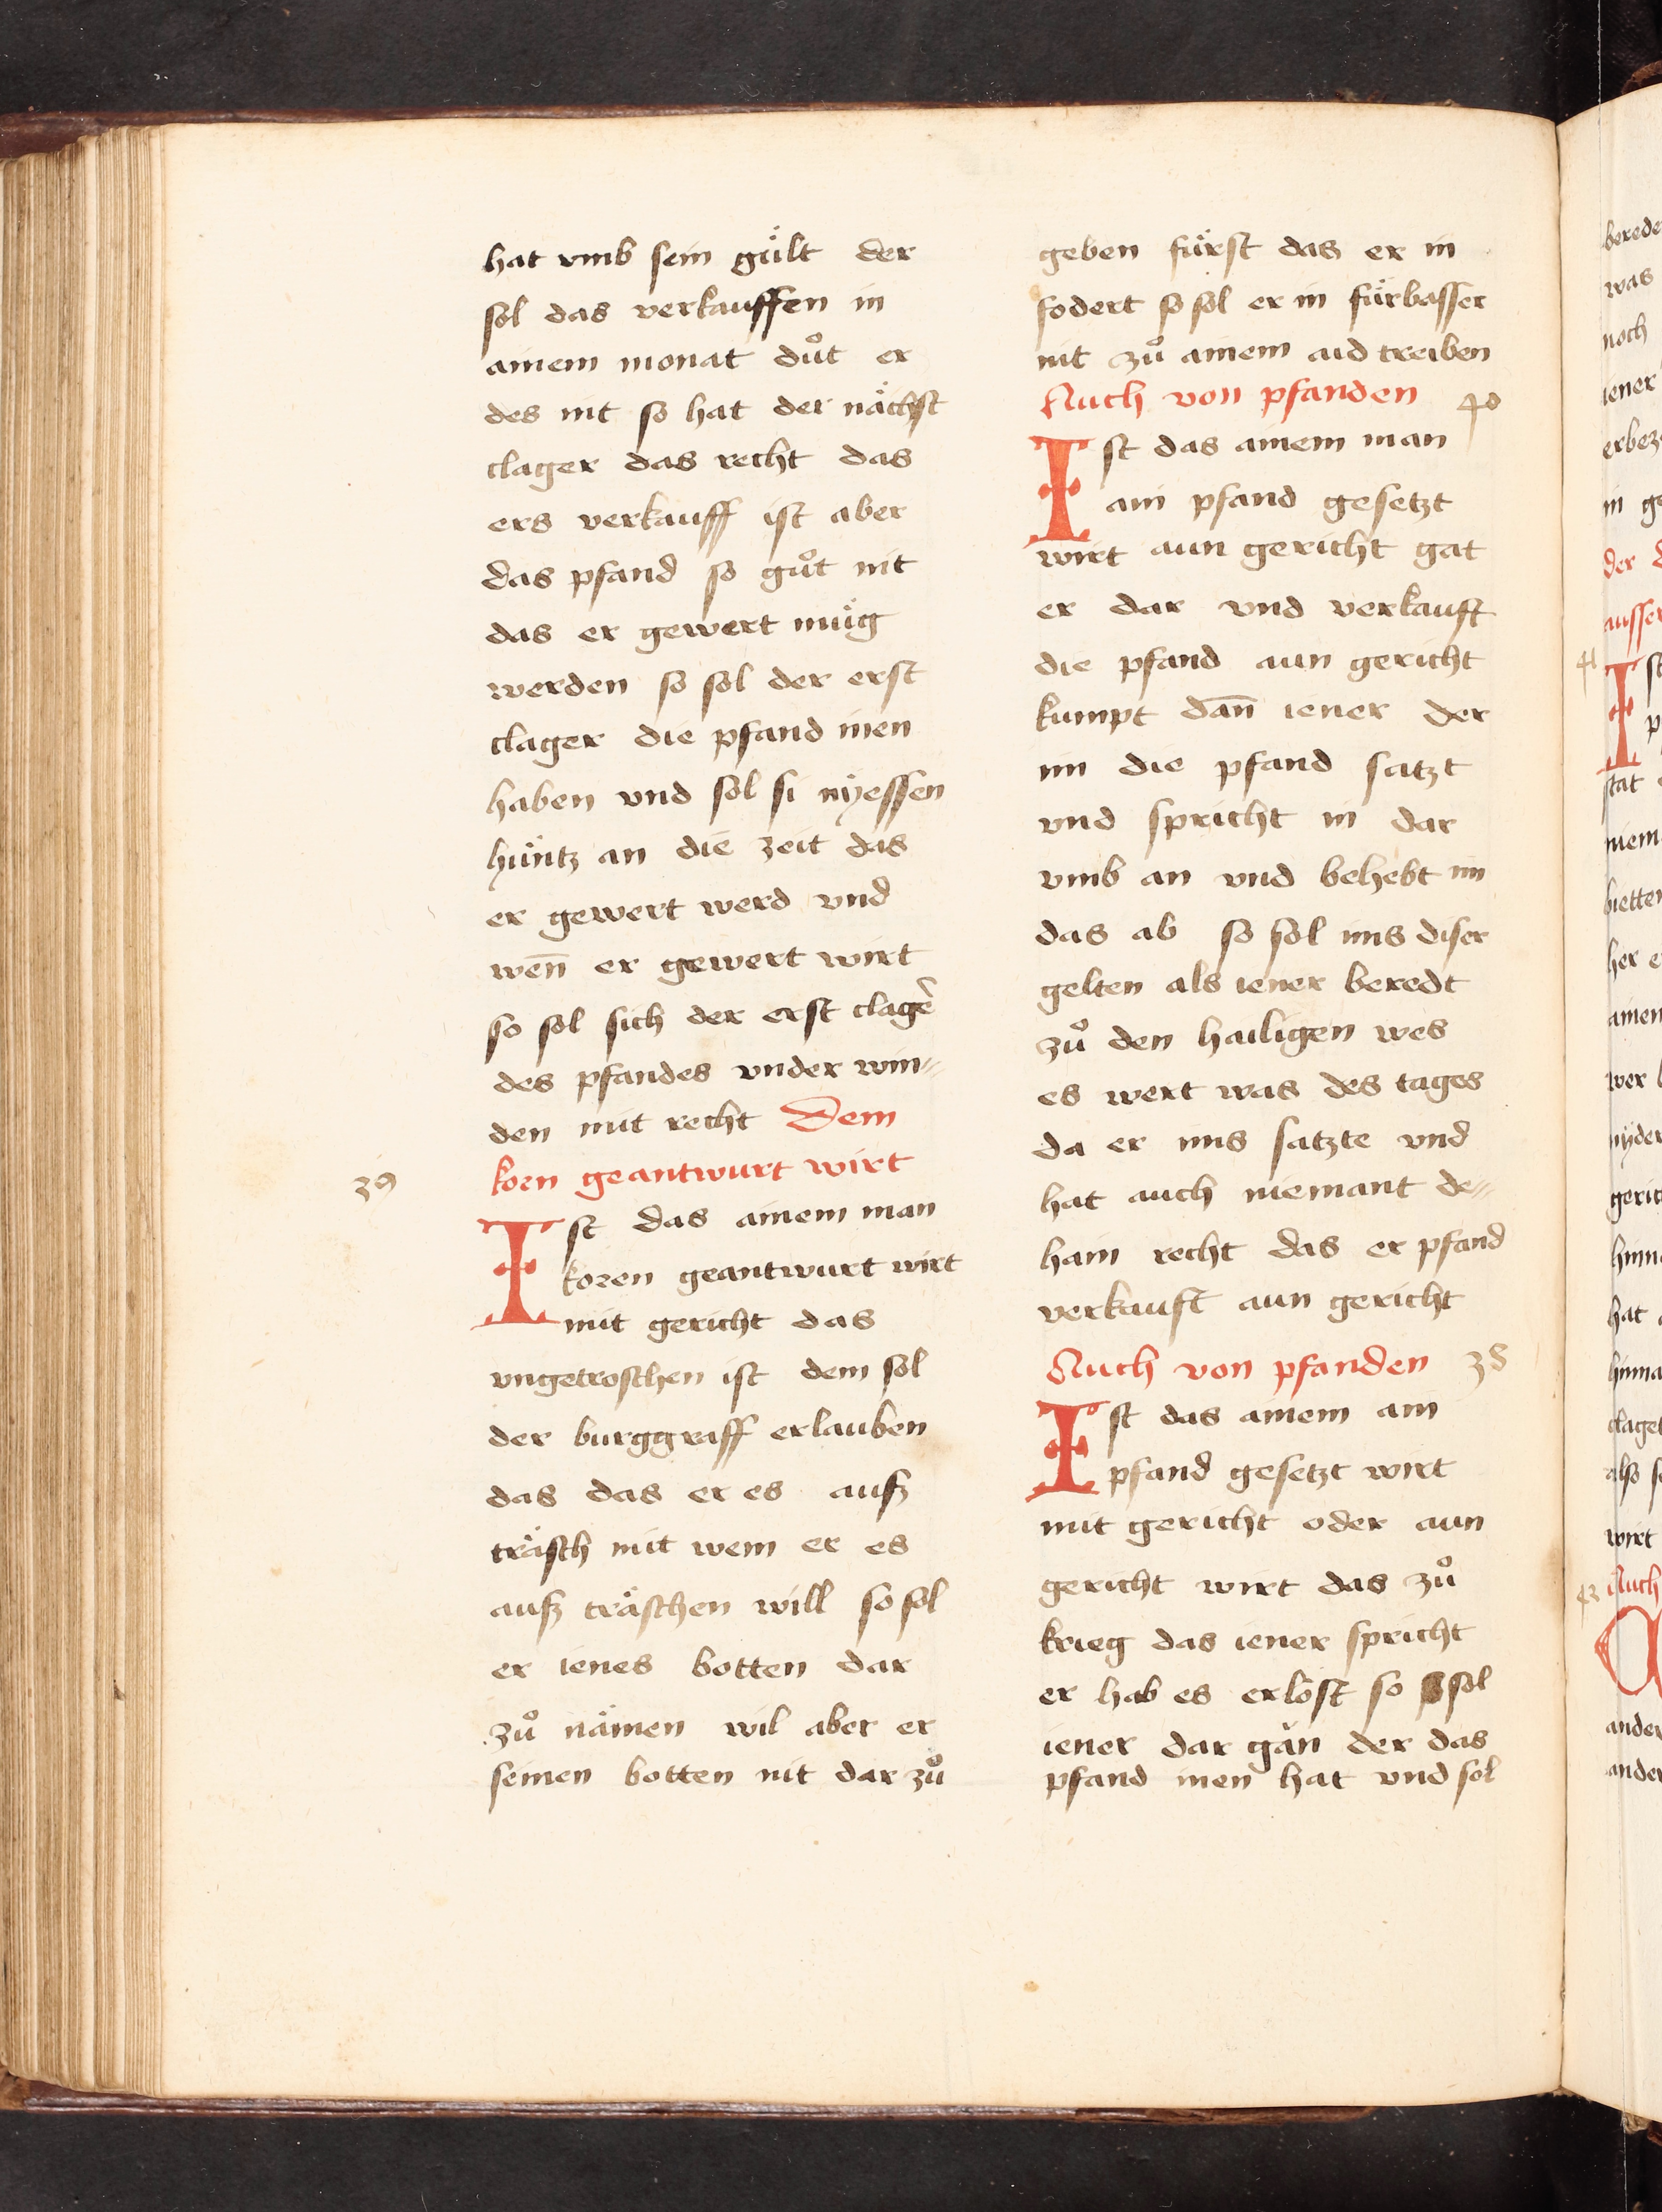 hat vmb sein gült der
sol das verkauffen in
ainem monat duͦt er
des nit so hat der nächst
clager das recht das
ers verkauff ist aber
das pfand so guͦt nit
das er gewert müg
werden so sol der erst
clager die pfand inen
haben vnd sol si nÿessen
hüntz an die zeit das
er gewert werd vnd
weñ er gewert wirt
so sol sich der erst clagẻ
des pfandes vnder win⸗
den mit recht Dem
korn geantwurt wirt
39
Ist das ainem man
koren geantwurt wirt
mit gericht das
vngetroschen ist dem sol
der burggraff erlauben
das das er es ausz
träsch mit wem er es
ausz träschen will so sol
er ienes botten dar
zuͦ nämen wil aber er
seinen botten nit dar zuͦ
geben fürst das er in
fodert so sol er in fürbasser
nit zuͦ ainem aid treiben
Auch von pfanden 40
Ist das ainem man
ain pfand gesetzt
wirt aun gericht gat
er dar vnd verkauft
die pfand aun gericht
kumpt dañ iener der
im die pfand satzt
vnd spricht in dar
vmb an vnd behebt im
das ab so sol ims diser
gelten als iener beredt
zuͦ den hailigen wes
es wert was des tages
da er ims satzte vnd
hat auch niemant de⸗
hain recht das er pfand
verkauft aun gericht
Auch von pfanden 38
Ist das ainem ain
pfand gesetzt wirt
mit gericht oder aun
gericht wirt das zuͦ
krieg das iener spricht
er hab es erlöst so sol
iener dar gän der das
pfand inen hat vnd sol
berede
was
noch
iener
erbez
in ge
der
ausser
41
Ist
p
stat
niem
bietten
her e
ainen
wer
nÿder
geric
hinn
hat
hinna
claget
also s
wirt
42 Auch
ander
ander